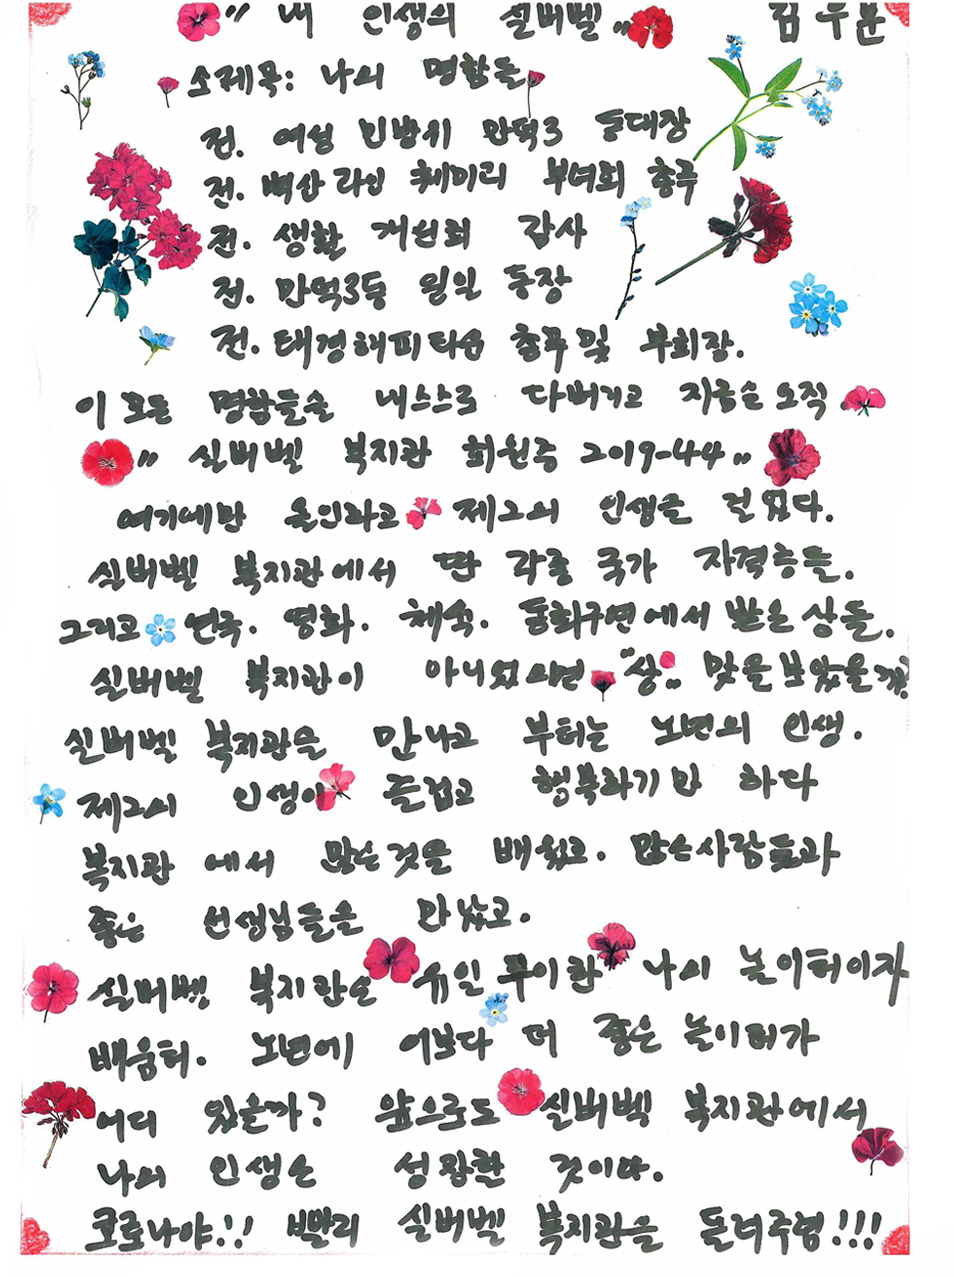 "내 인생의 실버벨" 김두분
소제목: 나의 명함들
전. 여성 민방위 만덕3 동대장
전. 벽산라인 췌미리 부녀회 총무
전. 생활 개선회 감사
전. 만덕3동 원일 통장
전. 태경해피타운 총무 및 부회장.
이 모든 명함들을 내스스로 다버리고 지금은 오직
" 실버벨 복지관 회원증 2019-44"
여기에만 올인하고 제2의 인생을 걸었다.
실버벨 복지관에서 딴 각종 국가 자격증들.
그리고 연극. 영화. 체육. 동화구연에서 받은 상들.
실버벨 복지관이 아니었으면 "상" 맛을 보았을까?
실버벨 복지관을 만나고 부터는 노년의 인생.
제2의 인생이 즐겁고 행복하기만 하다
복지관 에서 많은것을 배웠고. 많은사람들과
좋은 선생님들을 만났고.
실버벨 복지관은 유일무이한 나의 놀이터이자
배움터. 노년에 이보다 더 좋은 놀이터가
어디 있을까? 앞으로도 실버벨 복지관에서
나의 인생은 성장할 것이다.
코로나야!! 빨리 실버벨 복지관을 돌려주렴!!!